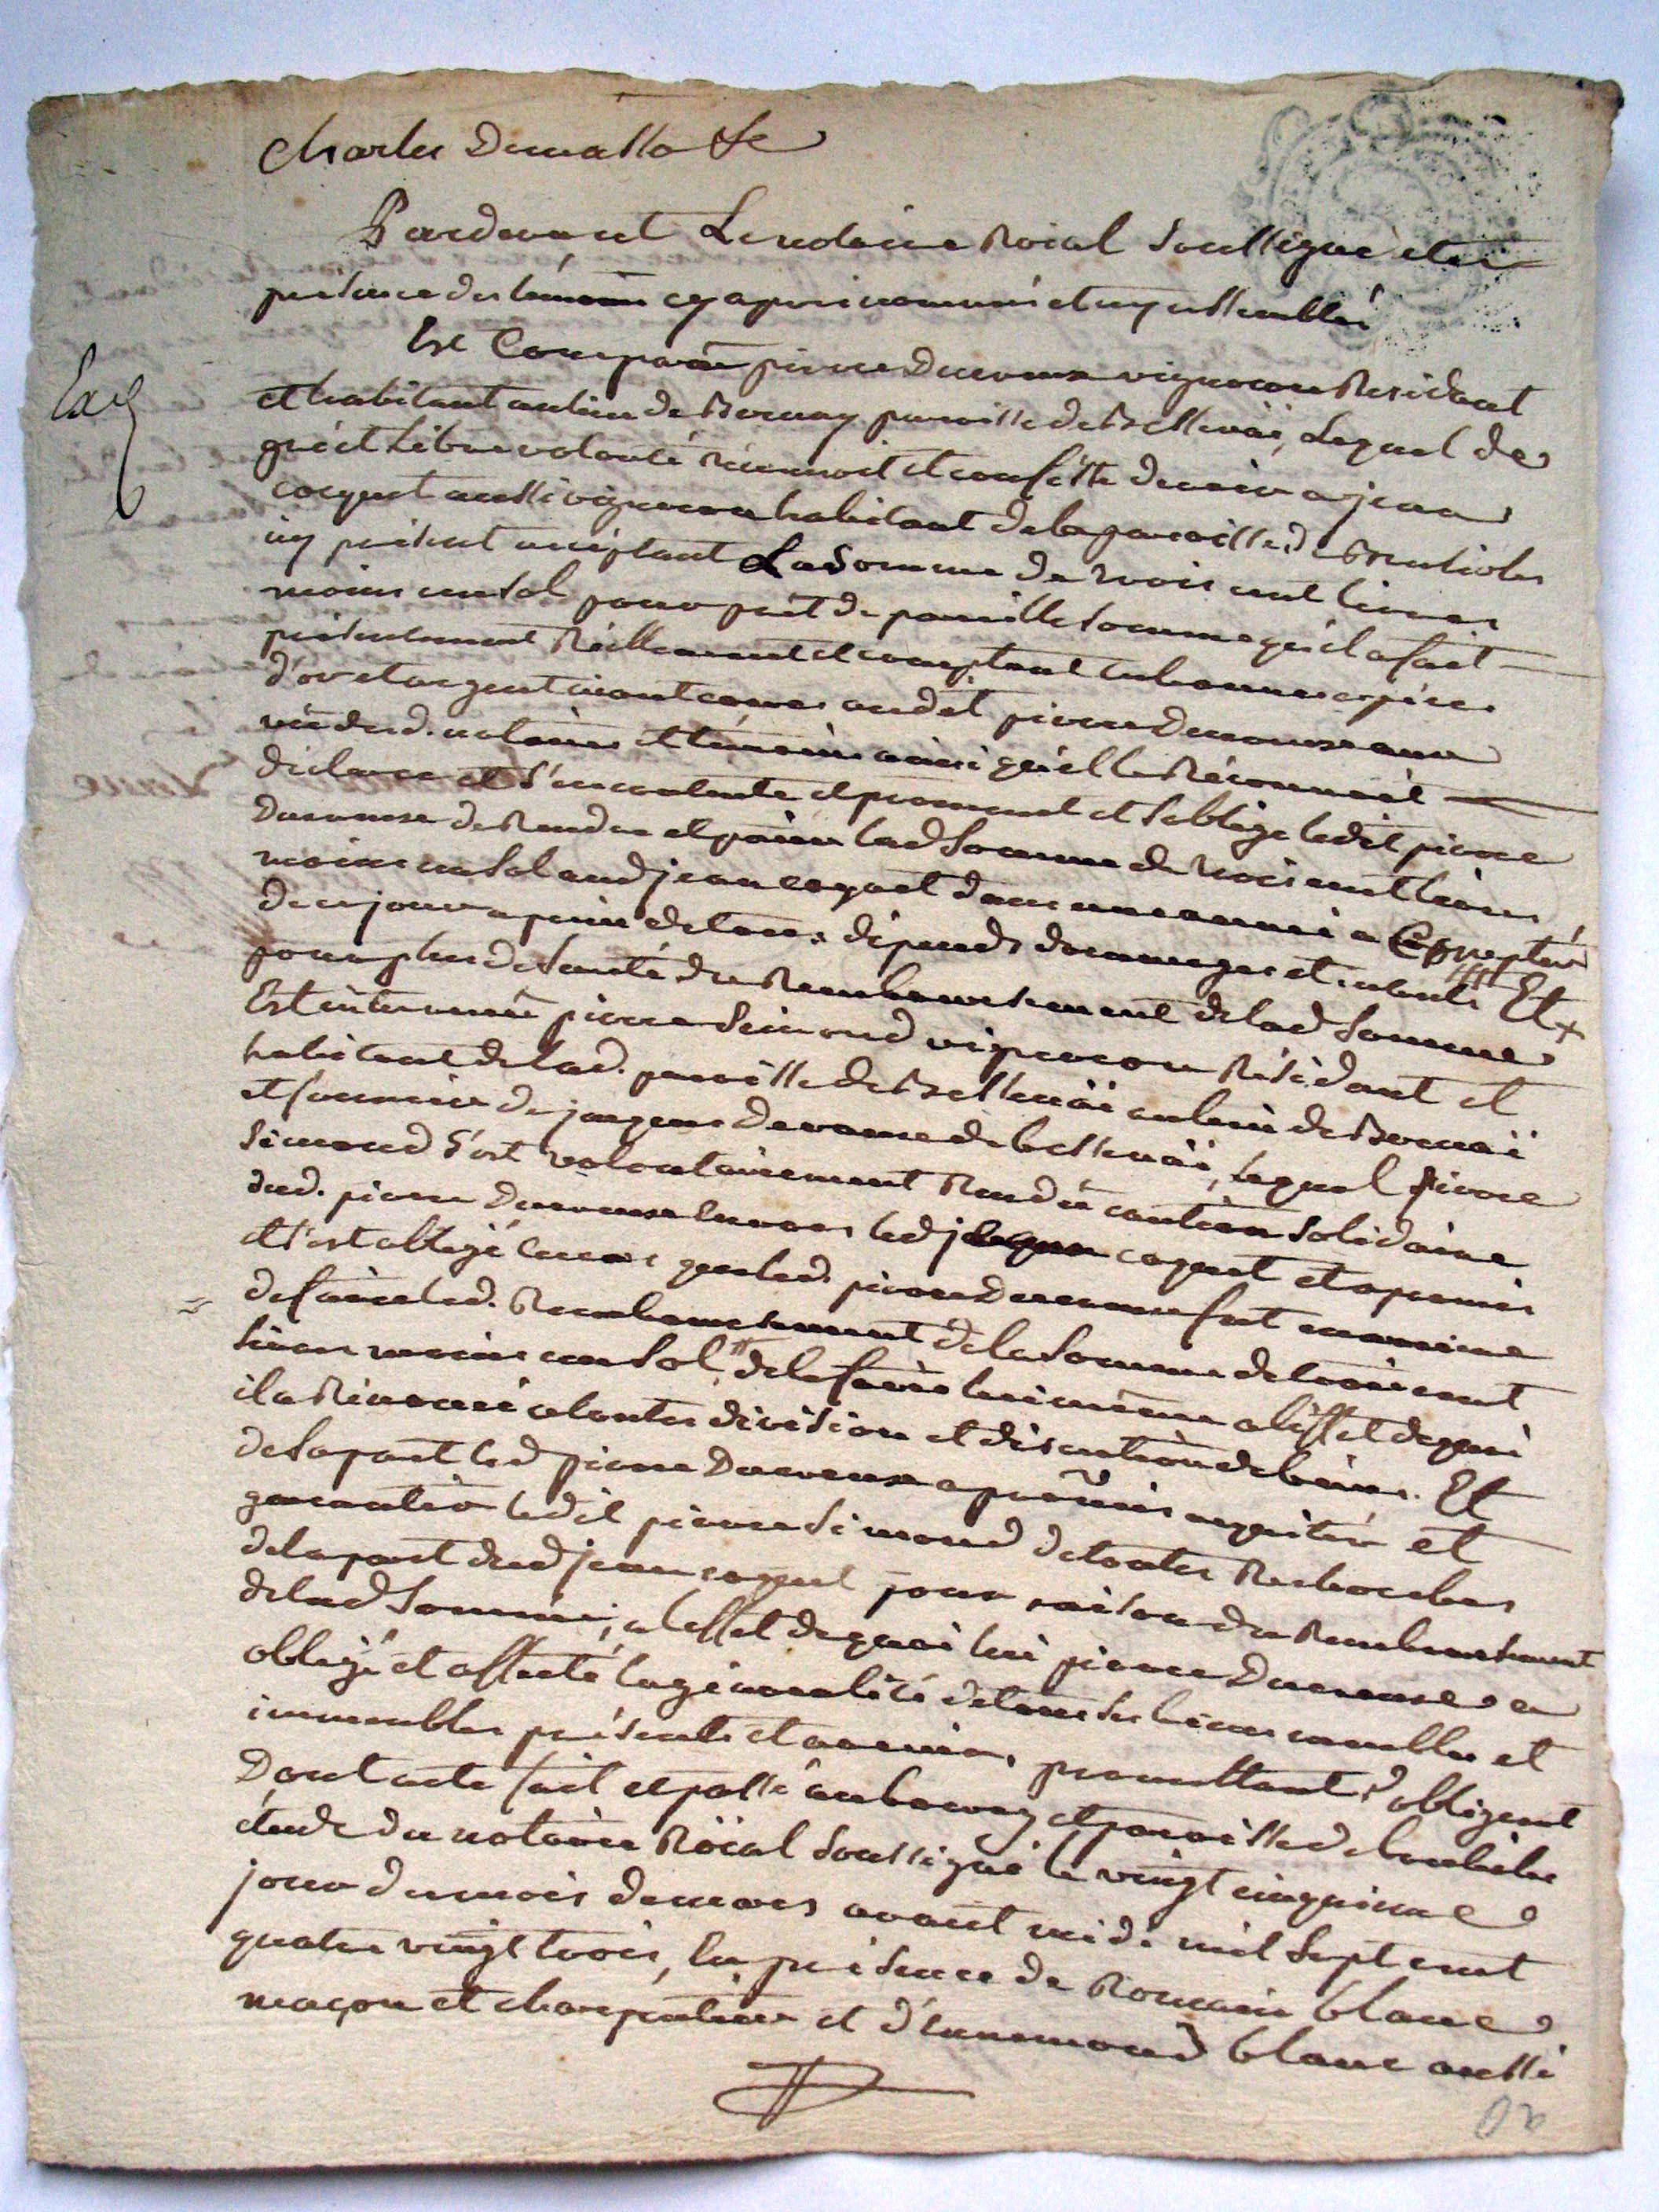 Pardevant Le notaire Roial Soussigné et en
presence des témoins cy apres nommés et icy assemblés
Est Comparu pierre Ducroux vigneron Residant
et habitant au lieu de parroisse de lequel de
gré et Libre volonté réconnoit et confesse devoir a jean
coquet aussi vigneron habitant de la parroisse de
icy présent acceptant La Somme de trois cent livres
moins un sol pour prêt de pareille Somme qu'il a fait
présentement Réellement et comptant en bonnes espéces
d'or et argent aiant cours audit pierre Ducroux aux
vûe dud. notaire et témoins ainsi qu'il le Réconnait
déclare et s'en contente et promet et s'oblige ledit pierre
Ducroux de Rendre et païer lad Somme de trois cent livres
moins un Sol aud jean coquet dans une année a Compter
de ce jour a peine de tous dépends dommages et intérêts Et
pour plus de Sureté du Remboursement de lad Somme
Est intervenu pierre Simond vigneron Résidant et
habitant de lad. parroisse de au lieu de
et fermier de lequel pierre
Simond s'est volontairement Rendû caution Solidaire
dud. pierre Ducroux envers led jean coquet et a promis
et s'est obligé en cas que led. pierre Ducroux fut en
de faire led. Remboursement de la Somme de trois cent
livres moins un Sol, de le faire lui même a l'effet de quoi
il a Rénoncé a toutes division et discution de biens. Et
de Sa part led pierre Ducroux a promis acquiter et
garantir ledit pierre Simond de toutes Recherches
de la part dud jean coquet pour raison du Remboursement
de lad Somme, a l'effet de quoi lui pierre Ducroux a
obligé et affecté la géneralité de tous Ses biens meubles et
immeubles présents et avenir, promettant, obligeant
Dont acte fait et passé au bourg et parroisse de
étude du notaire Roïal Soussigné le vingt cinquieme
jour du mois de mars avant midi mil Sept cent
quatre vingt trois, En présence de Romain blanc
maçon et charpentier et d'Ennemond blanc aussi